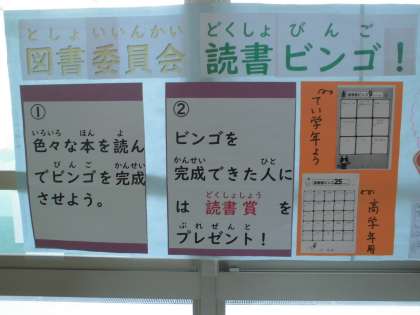 としょ いいんかい どくしょ びんご
図書委員会 読書ビンゴ！
①
いろいろ ほん よ
色々な本を読ん
びんご かんせい
でビンゴを完成
させよう。
②
ビンゴを
かんせい ひと
完成できた人に
どくしょしょう
は 読書賞 を
ぷれぜんと
プレゼント！
てい学年よう
高学年用